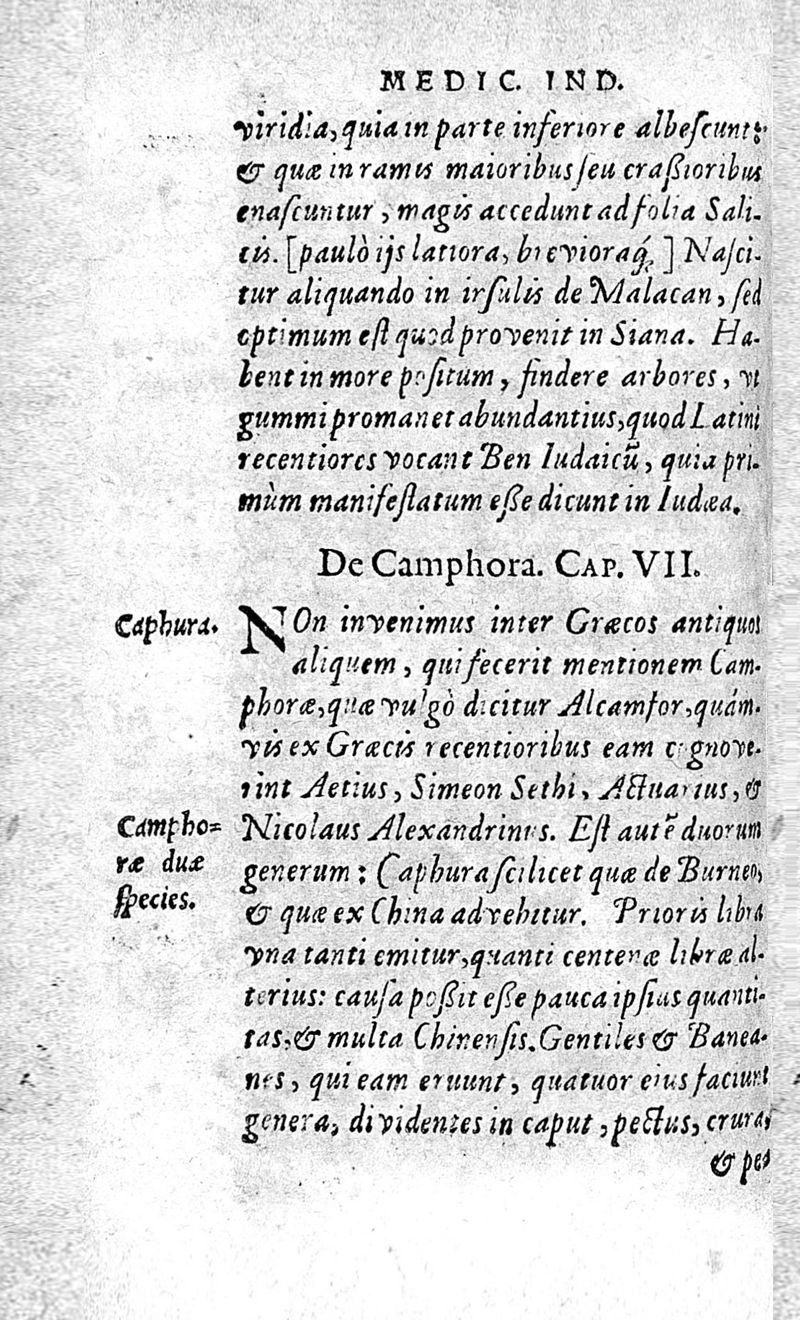 MEDIC. IND.
viridia, quia in parte inferiore albeſcunt:
& quæ in ramis maioribus ſeu craßioribus
enaſcuntur, magis accedunt ad folia Sali-
cis. [paulò ijs latiora, brevioraq́;] Naſci-
tur aliquando in inſulis de Malacan, ſed
optimum eſt quod provenit in Siana. Ha-
bent in more poſitum, findere arbores, vt
gummi promanet abundantius, quod Latini
recentiores vocant Ben Iudaicũ, quia pri-
mùm manifeſtatum eße dicunt in Iudæa.
De Camphora. CAP. VII.
Caphura.
NOn invenimus inter Græcos antiquos
aliquem, qui fecerit mentionem Cam-
phoræ, quæ vulgò dicitur Alcamfor, quám-
vis ex Græcis recentioribus eam cognove-
rint Aetius, Simeon Sethi, Actuarius, &
Campho-
ræ duæ
ſpecies.
Nicolaus Alexandrinus. Eſt autẽ duorum
generum: Caphura ſcilicet quæ de Burneo,
& quæ ex China advehitur. Prioris libra
vna tanti emitur, quanti centenæ libræ al-
terius: cauſa poßit eße pauca ipſius quanti-
tas, & multa Chinenſis. Gentiles & Banea-
nes, qui eam eruunt, quatuor eius faciunt
genera, dividentes in caput, pectus, crura,
& pes